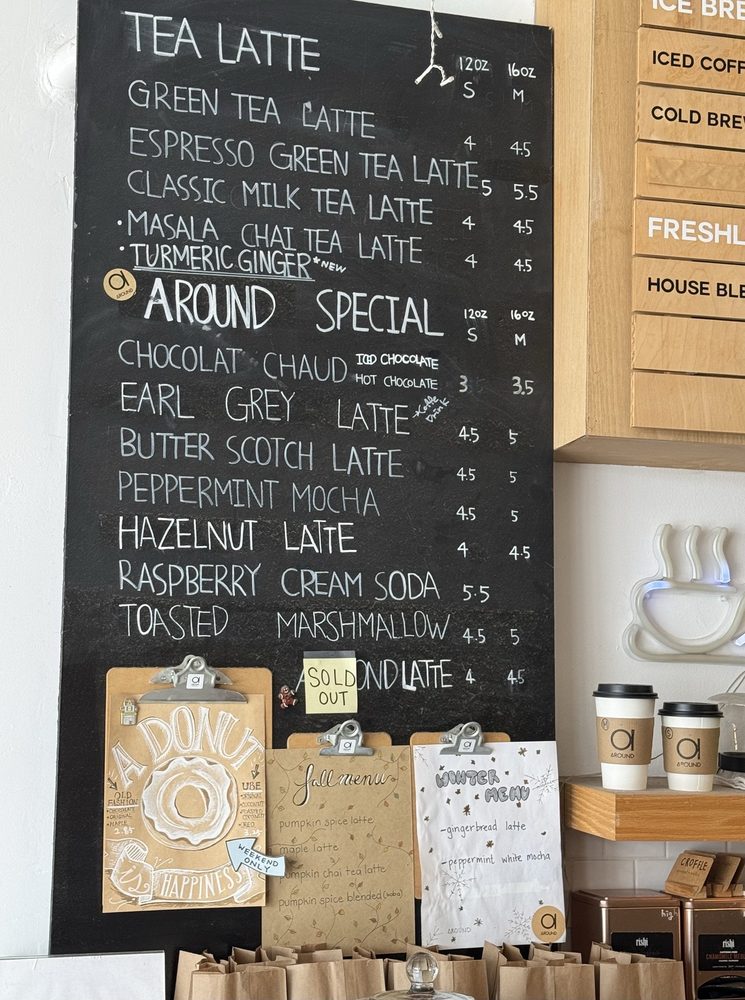 TEA LATTE
12OZ 16OZ
S M
GREEN TEA LATTE 4 4.5
ESPRESSO GREEN TEA LATTE 5 5.5
CLASSIC MILK TEA LATTE 4 4.5
•MASALA CHAI TEA LATTE 4 4.5
•TURMERIC GINGER *NEW
a AROUND
AROUND SPECIAL 12OZ 16OZ
S M
CHOCOLAT CHAUD ICED CHOCOLATE
HOT CHOCOLATE 3 3.5
EARL GREY LATTE 4.5 5
BUTTER SCOTCH LATTE 4.5 5
PEPPERMINT MOCHA 4.5 5
HAZELNUT LATTE 4 4.5
RASPBERRY CREAM SODA 5.5
TOASTED MARSHMALLOW 4.5 5
A OND LATTE 4 4.5
SOLD
OUT
A DONUT
OLD
FASHION
UBE
2.85
WEEKEND
ONLY
HAPPINESS
fall menu
pumpkin spice latte
maple latte
pumpkin chai tea latte
pumpkin spice blended (soba)
WINTER
MENU
-gingerbread latte
-peppermint white mocha
AROUND
a
AROUND
ICE BRE
ICED COFF
COLD BREW
FRESHL
HOUSE BLE
a
AROUND
a
AROUND
CROFFLE
high
rishi
rishi